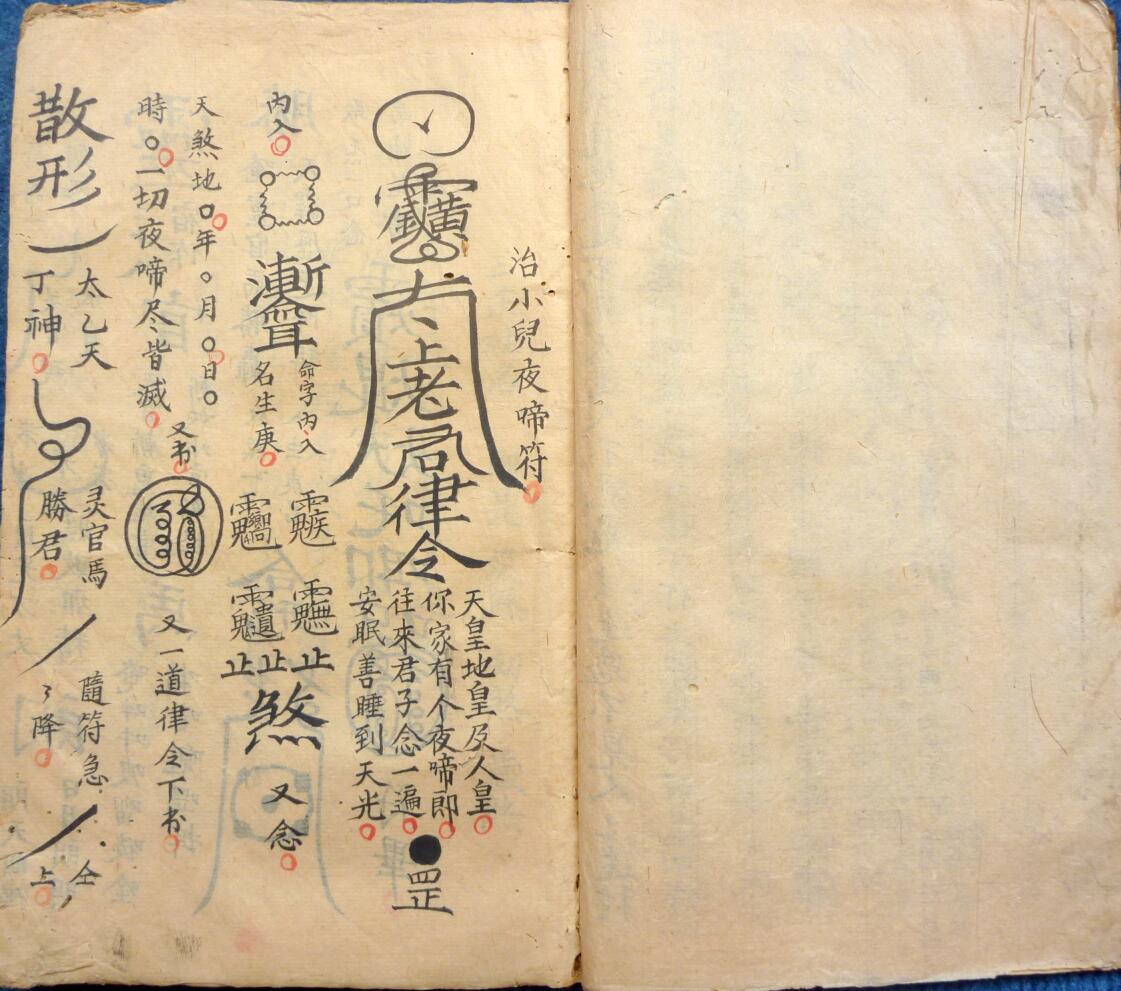 治小兒夜啼符
太上老君律令
罡
天皇地皇及人皇
你家有个夜啼郎
往來君子念一遍
安眠善睡到天光
內入
漸耳
命字內入
名生庚
止止止
煞
又念
天煞地〇年〇月〇日〇
時〇一切夜啼尽皆滅
又书
又一道律令下书
散形
太乙天
丁神
灵官馬
勝君
隨符急
降
仝
上